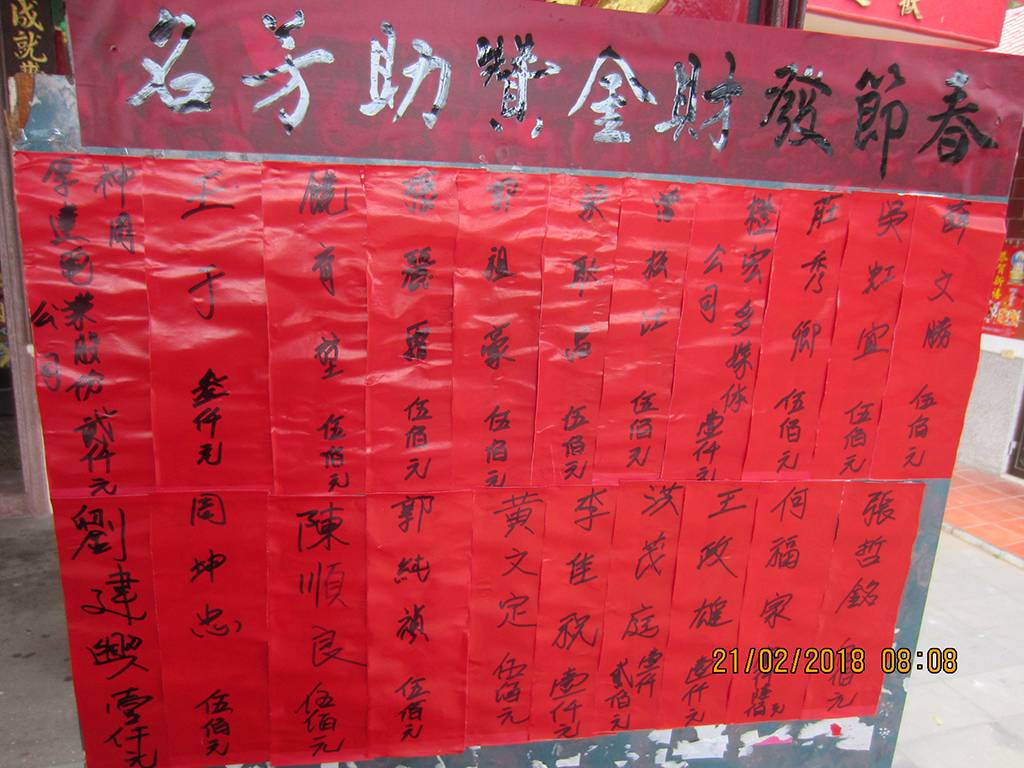 春節發財金贊助芳名
薛文勝 伍佰元
吳虹宜 伍佰元
莊秀卿 伍佰元
橙宏多媒体公司 壹仟元
松江 伍佰元
伍佰元
郭祖豪 伍佰元
張麗 伍佰元
饒育 伍佰元
王于 叁仟元
神岡厚達 業股份公司 貳仟元
張哲銘 伍佰元
何福家
王政雄 壹仟元
洪茂庭 壹仟貳佰元
李佳祝 壹仟元
黃文定 伍佰元
郭純禎 伍佰元
陳順良 伍佰元
周坤忠 伍佰元
劉建興 壹仟元
成就
恭賀新禧
21/02/2018 08:08